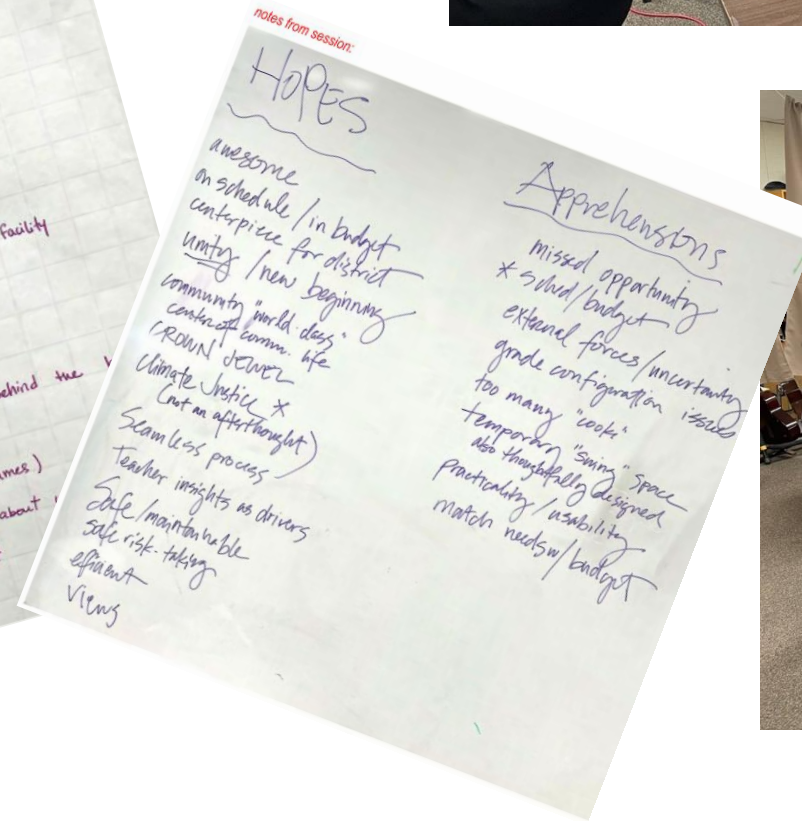 facility
ehind the
mes)
about
notes from session:
HOPES
awesome
on schedule / in budget
centerpiece for district
unity / new beginning
community "world-class"
center of comm. life
CROWN JEWEL
Climate Justice *
(not an afterthought)
Seamless process
Teacher insights as drivers
Safe/maintainable
safe risk-taking
efficient
views
Apprehensions
missed opportunity
* sched/budget
external forces/uncertainty
grade configuration issues
too many "cooks"
temporary "swing" space
also thoughtfully designed
practicality/usability
match needs w/ budget